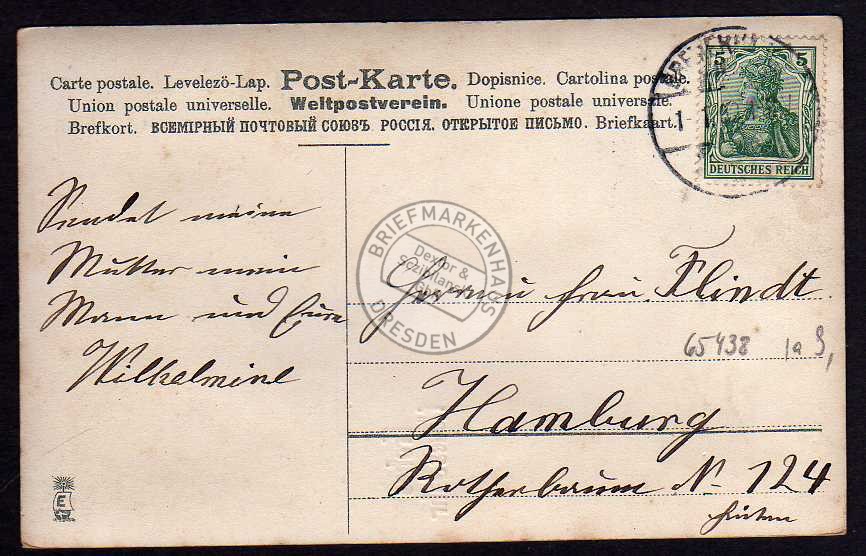 Carte postale. Levelezö-Lap. Post-Karte. Dopisnice. Cartolina postale.
Union postale universelle. Weltpostverein. Unione postale universale.
Brefkort. ВСЕМІРНЫЙ ПОЧТОВЫЙ СОЮЗЪ РОССІЯ. ОТКРЫТОЕ ПИСЬМО. Briefkaart.
5 5
DEUTSCHES REICH
Sendet meine
Mutter mein
Mann und Eure
Wilhelmine
BRIEFMARKENHAUS
DRESDEN
Frau Flindt
65438
Hamburg
Rotherbaum N. 124
E